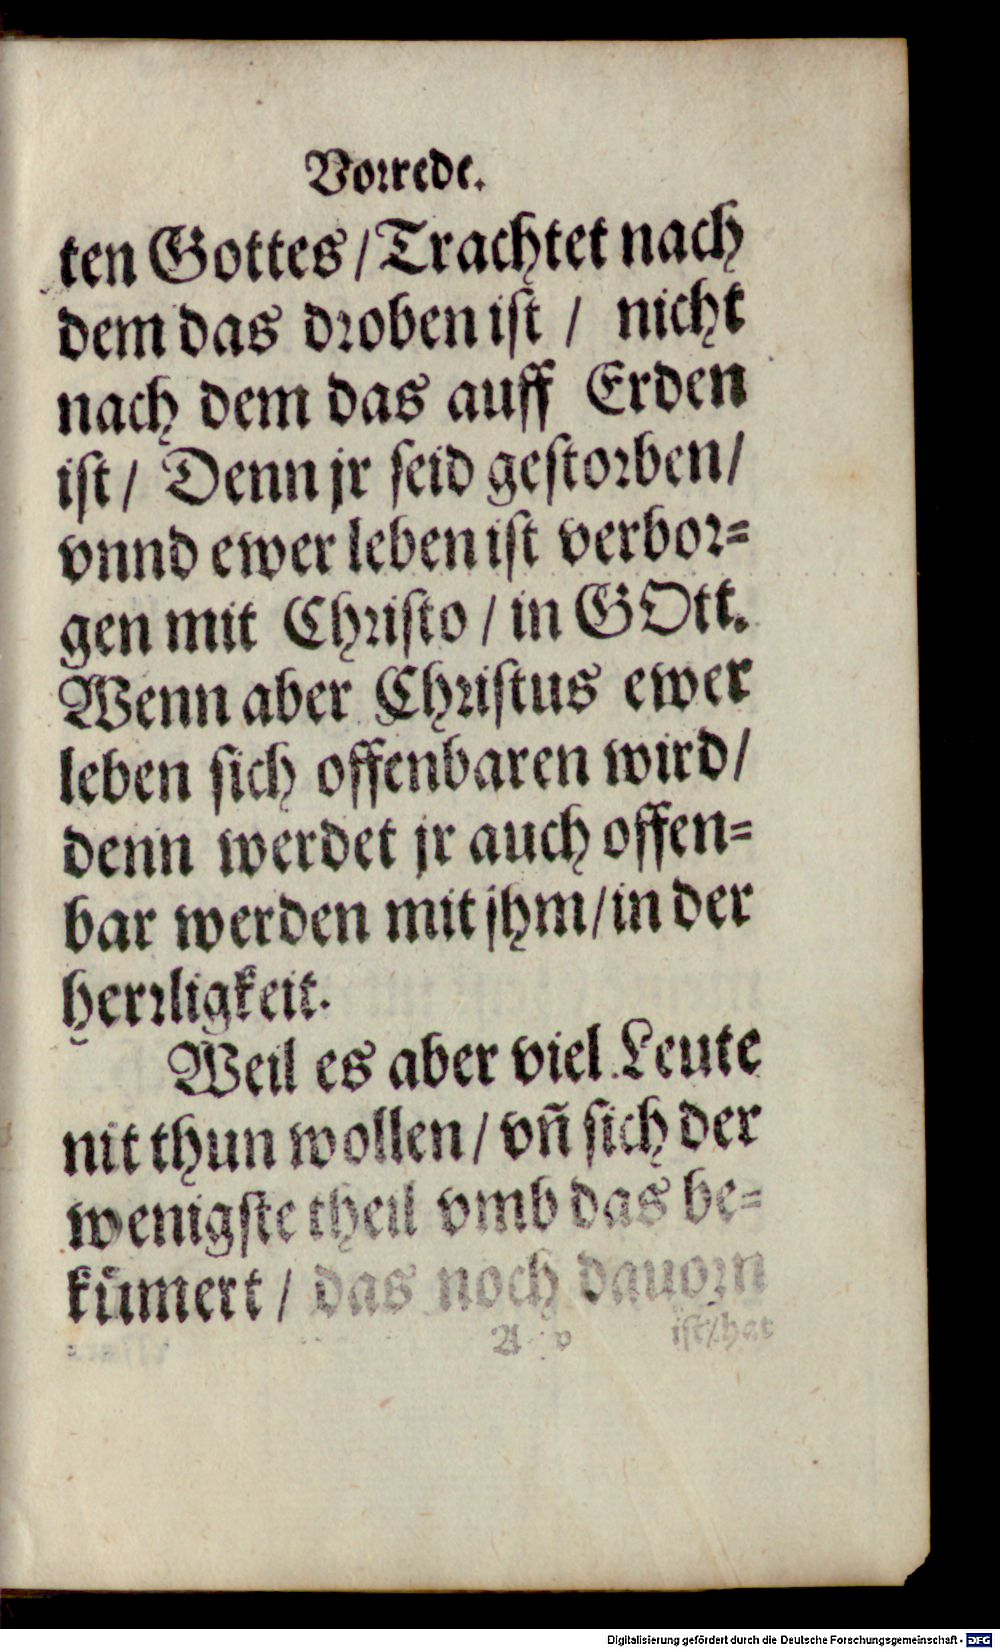 Vorrede.
ten Gottes / Trachtet nach
dem das droben ist / nicht
nach dem das auff Erden
ist / Denn jr seid gestorben /
vnnd ewer leben ist verbor=
gen mit Christo / in GOtt.
Wenn aber Christus ewer
leben sich offenbaren wird /
denn werdet jr auch offen=
bar werden mit jhm / in der
herrligkeit.
Weil es aber viel Leute
nit thun wollen / vñ sich der
wenigste theil vmb das be=
kümert / das noch dauorn
A v ist / hat
Digitalisierung gefördert durch die Deutsche Forschungsgemeinschaft - DFG